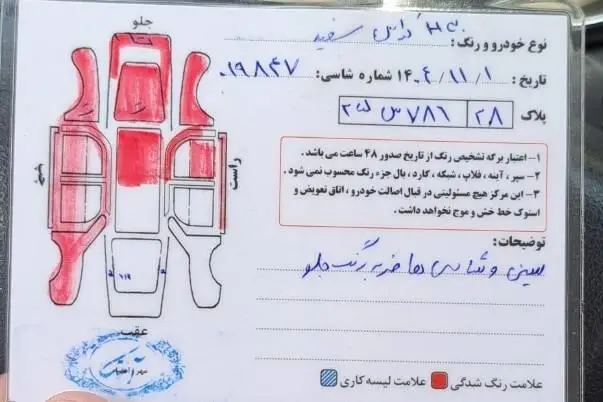 جلو
نوع خودرو و رنگ : سفید
تاریخ : ۱۴۰۴/۱۱/۱ شماره شاسی: ۰۱۹۸۴۷
پلاک ۲۸ ۷۸۶
۱- اعتبار برگه تشخیص رنگ از تاریخ صدور ۴۸ ساعت می باشد .
۲- سپر ، آینه ، فلاپ ، شبکه ، کارد ، بال جزء رنگ محسوب نمی شود .
۳- این مرکز هیچ مسئولیتی در قبال اصالت خودرو ، اتاق تعویض و
استوک خط خش و موج نخواهد داشت .
راست
چپ
توضیحات:
سینی و شاسی ها ضربه رنگ جلو
عقب
مهر و امضاء
علامت رنگ شدگی علامت لیسه کاری